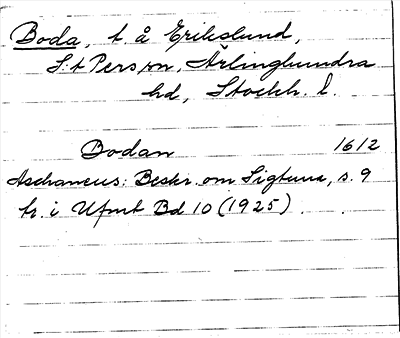 Boda, t. å Erikslund,
S:t Pers sn, Ärlinghundra
hd, Stockh. l.
Bodan 1612
Aschaneus: Beskr. om Sigtuna, s. 9
tr. i Ufmt Bd 10 (1925)